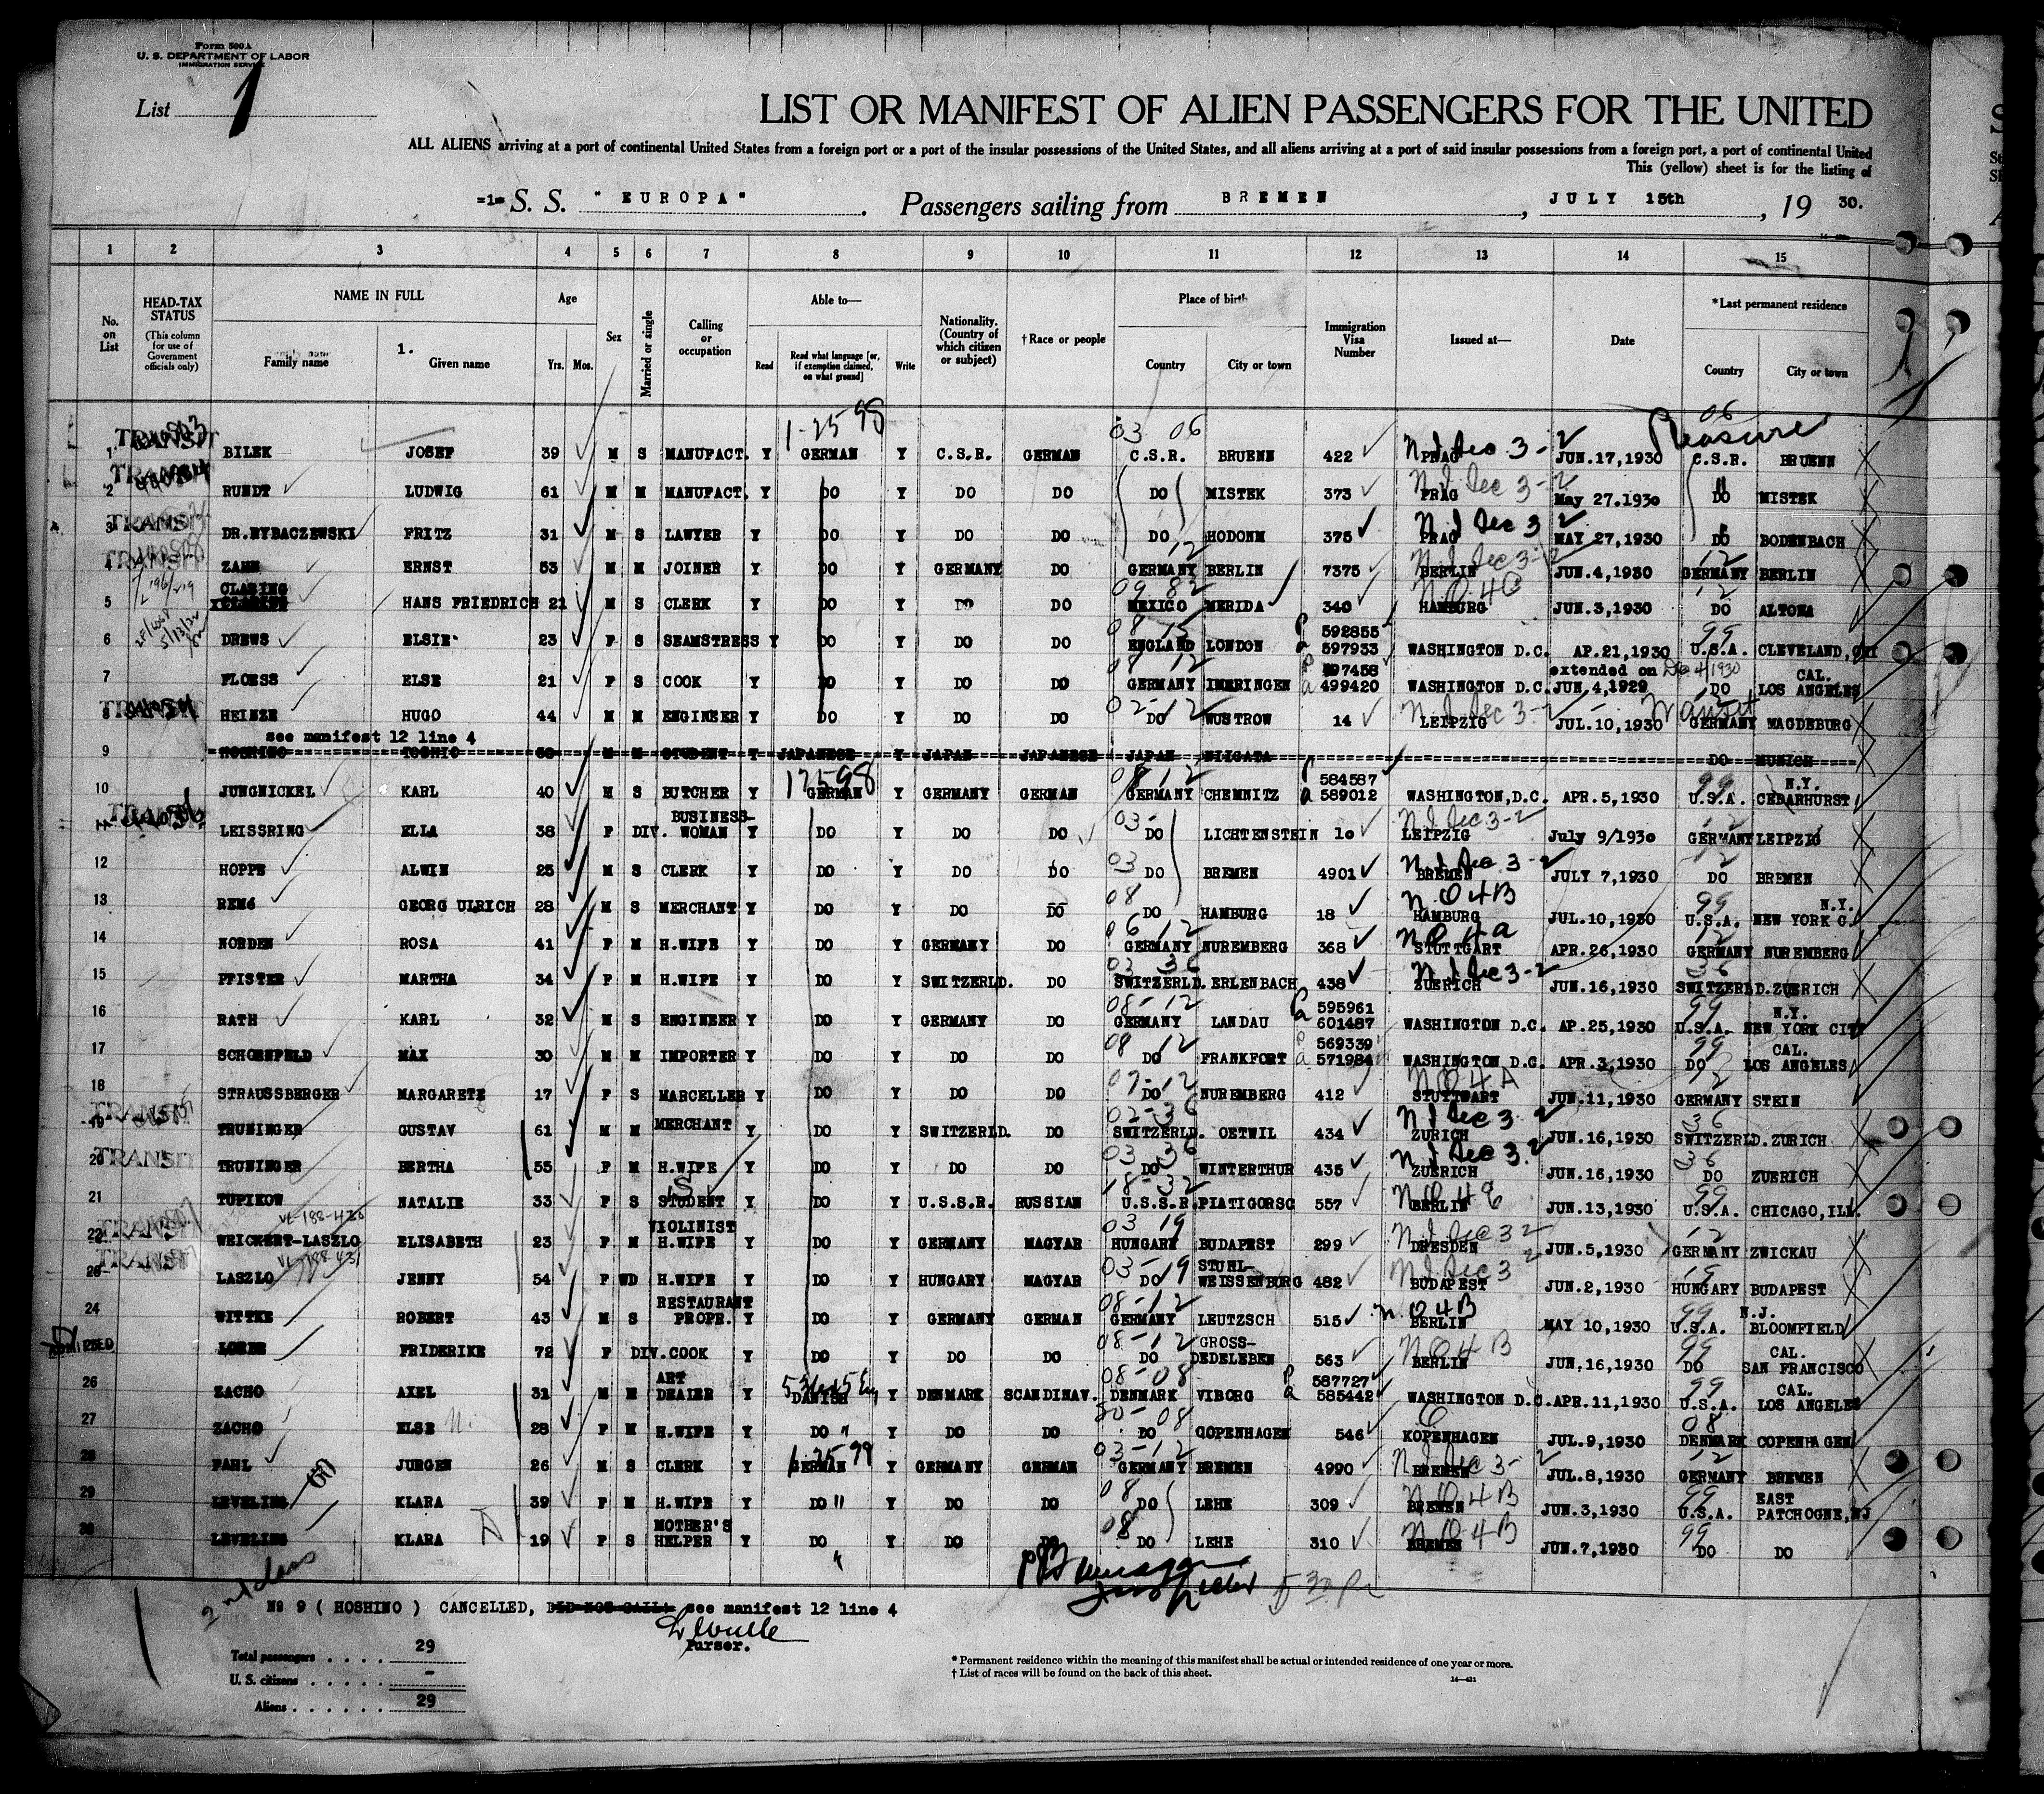 Form 500A
U. S. DEPARTMENT OF LABOR
IMMIGRATION SERVICE
List 1
LIST OR MANIFEST OF ALIEN PASSENGERS FOR THE UNITED
ALL ALIENS arriving at a port of continental United States from a foreign port or a port of the insular possessions of the United States, and all aliens arriving at a port of said insular possessions from a foreign port, a port of continental United
This (yellow) sheet is for the listing of
=1= S. S. "EUROPA". Passengers sailing from BREMEN, JULY 15th, 19 30.
1 2 3 4 5 6 7 8 9 10 11 12 13 14 15
No. on List
HEAD-TAX STATUS (This column for use of Government officials only)
NAME IN FULL
Family name
1. Given name
Age
Yrs. Mos.
Sex
Married or single
Calling or occupation
Able to—
Read
Read what language [or, if exemption claimed, on what ground]
Write
Nationality. (Country of which citizen or subject)
†Race or people
Place of birth
Country
City or town
Immigration Visa Number
Issued at—
Date
*Last permanent residence
Country
City or town
1-25 98 03 06 06 Pleasure
TRANSIT 1 BILEK JOSEF 39 M S MANUFACT. Y GERMAN Y C.S.R. GERMAN C.S.R. BRUENN 422 PRAG JUN.17,1930 C.S.R. BRUENN
TRANSIT 2 RUNDT LUDWIG 61 M M MANUFACT. Y DO Y DO DO DO MISTEK 373 PRAG May 27.1930 DO MISTEK
TRANSIT 3 DR.RYBACZEWSKI FRITZ 31 M S LAWYER Y DO Y DO DO DO HODONM 375 PRAG MAY 27,1930 DO BODENBACH
TRANSIT 4 ZAHN ERNST 53 M M JOINER Y DO Y GERMANY DO GERMANY BERLIN 7375 BERLIN JUN.4,1930 GERMANY BERLIN
5 CLASING HANS FRIEDRICH 21 M S CLERK Y DO Y DO DO MEXICO MERIDA 340 HAMBURG JUN.3,1930 DO ALTONA
6 DREWS ELSIE 23 F S SEAMSTRESS Y DO Y DO DO ENGLAND LONDON P 592855 a 597933 WASHINGTON D.C. AP.21,1930 U.S.A. CLEVELAND,
7 FLOESS ELSE 21 F S COOK Y DO Y DO DO GERMANY IMMRINGEN 499420 WASHINGTON D.C. JUN.4,1929 extended on 1930 DO CAL. LOS ANGELES
TRANSIT 8 HEINZE HUGO 44 M M ENGINEER Y DO Y DO DO DO WUSTROW 14 LEIPZIG JUL.10,1930 GERMANY MAGDEBURG
see manifest 12 line 4
9 HOSHINO TOSHIO M M STUDENT Y JAPANESE Y JAPAN JAPANESE JAPAN NIIGATA DO MUNICH
10 JUNGNICKEL KARL 40 M S BUTCHER Y GERMAN Y GERMANY GERMAN GERMANY CHEMNITZ P 584587 a 589012 WASHINGTON,D.C. APR.5,1930 U.S.A. N.Y. CEDARHURST
TRANSIT 11 LEISSRING ELLA 38 F DIV. BUSINESS-WOMAN Y DO Y DO DO DO LICHTENSTEIN 10 LEIPZIG July 9/1930 GERMANY LEIPZIG
12 HOPPE ALWIN 25 M S CLERK Y DO Y DO DO DO BREMEN 4901 BREMEN JULY 7,1930 DO BREMEN
13 REMé GEORG ULRICH 28 M S MERCHANT Y DO Y DO DO DO HAMBURG 18 HAMBURG JUL.10,1930 U.S.A. N.Y. NEW YORK C.
14 NORDEN ROSA 41 F M H.WIFE Y DO Y GERMANY DO GERMANY NUREMBERG 368 STUTTGART APR.26,1930 GERMANY NUREMBERG
15 PFISTER MARTHA 34 F M H.WIFE Y DO Y SWITZERLD. DO SWITZERLD. ERLENBACH 438 ZUERICH JUN.16,1930 SWITZERLD. ZUERICH
16 RATH KARL 32 M S ENGINEER Y DO Y GERMANY DO GERMANY LANDAU P 595961 a 601487 WASHINGTON D.C. AP.25,1930 U.S.A. N.Y. NEW YORK CITY
17 SCHOENFELD MAX 30 M M IMPORTER Y DO Y DO DO DO FRANKFORT P 569339 a 571984 WASHINGTON D.C. APR.3,1930 DO CAL. LOS ANGELES
18 STRAUSSBERGER MARGARETE 17 F S MARCELLER Y DO Y DO DO DO NUREMBERG 412 STUTTWART JUN.11,1930 GERMANY STEIN
TRANSIT 19 TRUNINGER GUSTAV 61 M M MERCHANT Y DO Y SWITZERLD. DO SWITZERLD. OETWIL 434 ZURICH JUN.16,1930 SWITZERLD. ZURICH
TRANSIT 20 TRUNINGER BERTHA 55 F M H.WIFE Y DO Y DO DO DO WINTERTHUR 435 ZUERICH JUN.16,1930 DO ZUERICH
21 TUPIKOW NATALIE 33 F S STUDENT Y DO Y U.S.S.R. RUSSIAN U.S.S.R. PIATIGORSC 557 BERLIN JUN.13,1930 U.S.A. CHICAGO,ILL.
TRANSIT 22 WEICKERT-LASZLO ELISABETH 23 F M VIOLINIST H.WIFE Y DO Y GERMANY MAGYAR HUNGARY BUDAPEST 299 DRESDEN JUN.5,1930 GERMANY ZWICKAU
TRANSIT 23 LASZLO JENNY 54 F WD H.WIFE Y DO Y HUNGARY MAGYAR DO STUHL-WEISSENBURG 482 BUDAPEST JUN.2,1930 HUNGARY BUDAPEST
24 WITTKE ROBERT 43 M S RESTAURANT PROPR. Y DO Y GERMANY GERMAN GERMANY LEUTZSCH 515 BERLIN MAY 10,1930 U.S.A. N.J. BLOOMFIELD
ADMITTED FRIDERIKE 72 F DIV. COOK Y DO Y DO DO DO GROSS-DEDELEBEN 563 BERLIN JUN,16,1930 DO CAL. SAN FRANCISCO
26 ZACHO AXEL 31 M M ART DEALER Y DANISH Y DENMARK SCANDINAV. DENMARK VIBORG P 587727 a 585442 WASHINGTON D.C. APR.11,1930 U.S.A. CAL. LOS ANGELES
27 ZACHO ELSE 28 F M H.WIFE Y DO " Y DO DO DO COPENHAGEN 546 KOPENHAGEN JUL.9,1930 DENMARK COPENHAGEN
28 PAHL JURGEN 26 M S CLERK Y GERMAN Y GERMANY GERMAN GERMANY BREMEN 4990 BREMEN JUL.8,1930 GERMANY BREMEN
29 LEVELING KLARA 39 F M H.WIFE Y DO " Y DO DO DO LEHE 309 BREMEN JUN.3,1930 U.S.A. EAST PATCHOGNE,NJ
30 LEVELING KLARA 19 F S MOTHER'S HELPER Y DO " Y DO DO DO LEHE 310 BREMEN JUN.7,1930 DO DO
2nd class
No 9 ( HOSHINO ) CANCELLED, DID NOT SAIL. see manifest 12 line 4
Purser.
Total passengers . . . . 29
U. S. citizens . . . . . -
Aliens . . . . . . 29
* Permanent residence within the meaning of this manifest shall be actual or intended residence of one year or more.
† List of races will be found on the back of this sheet.